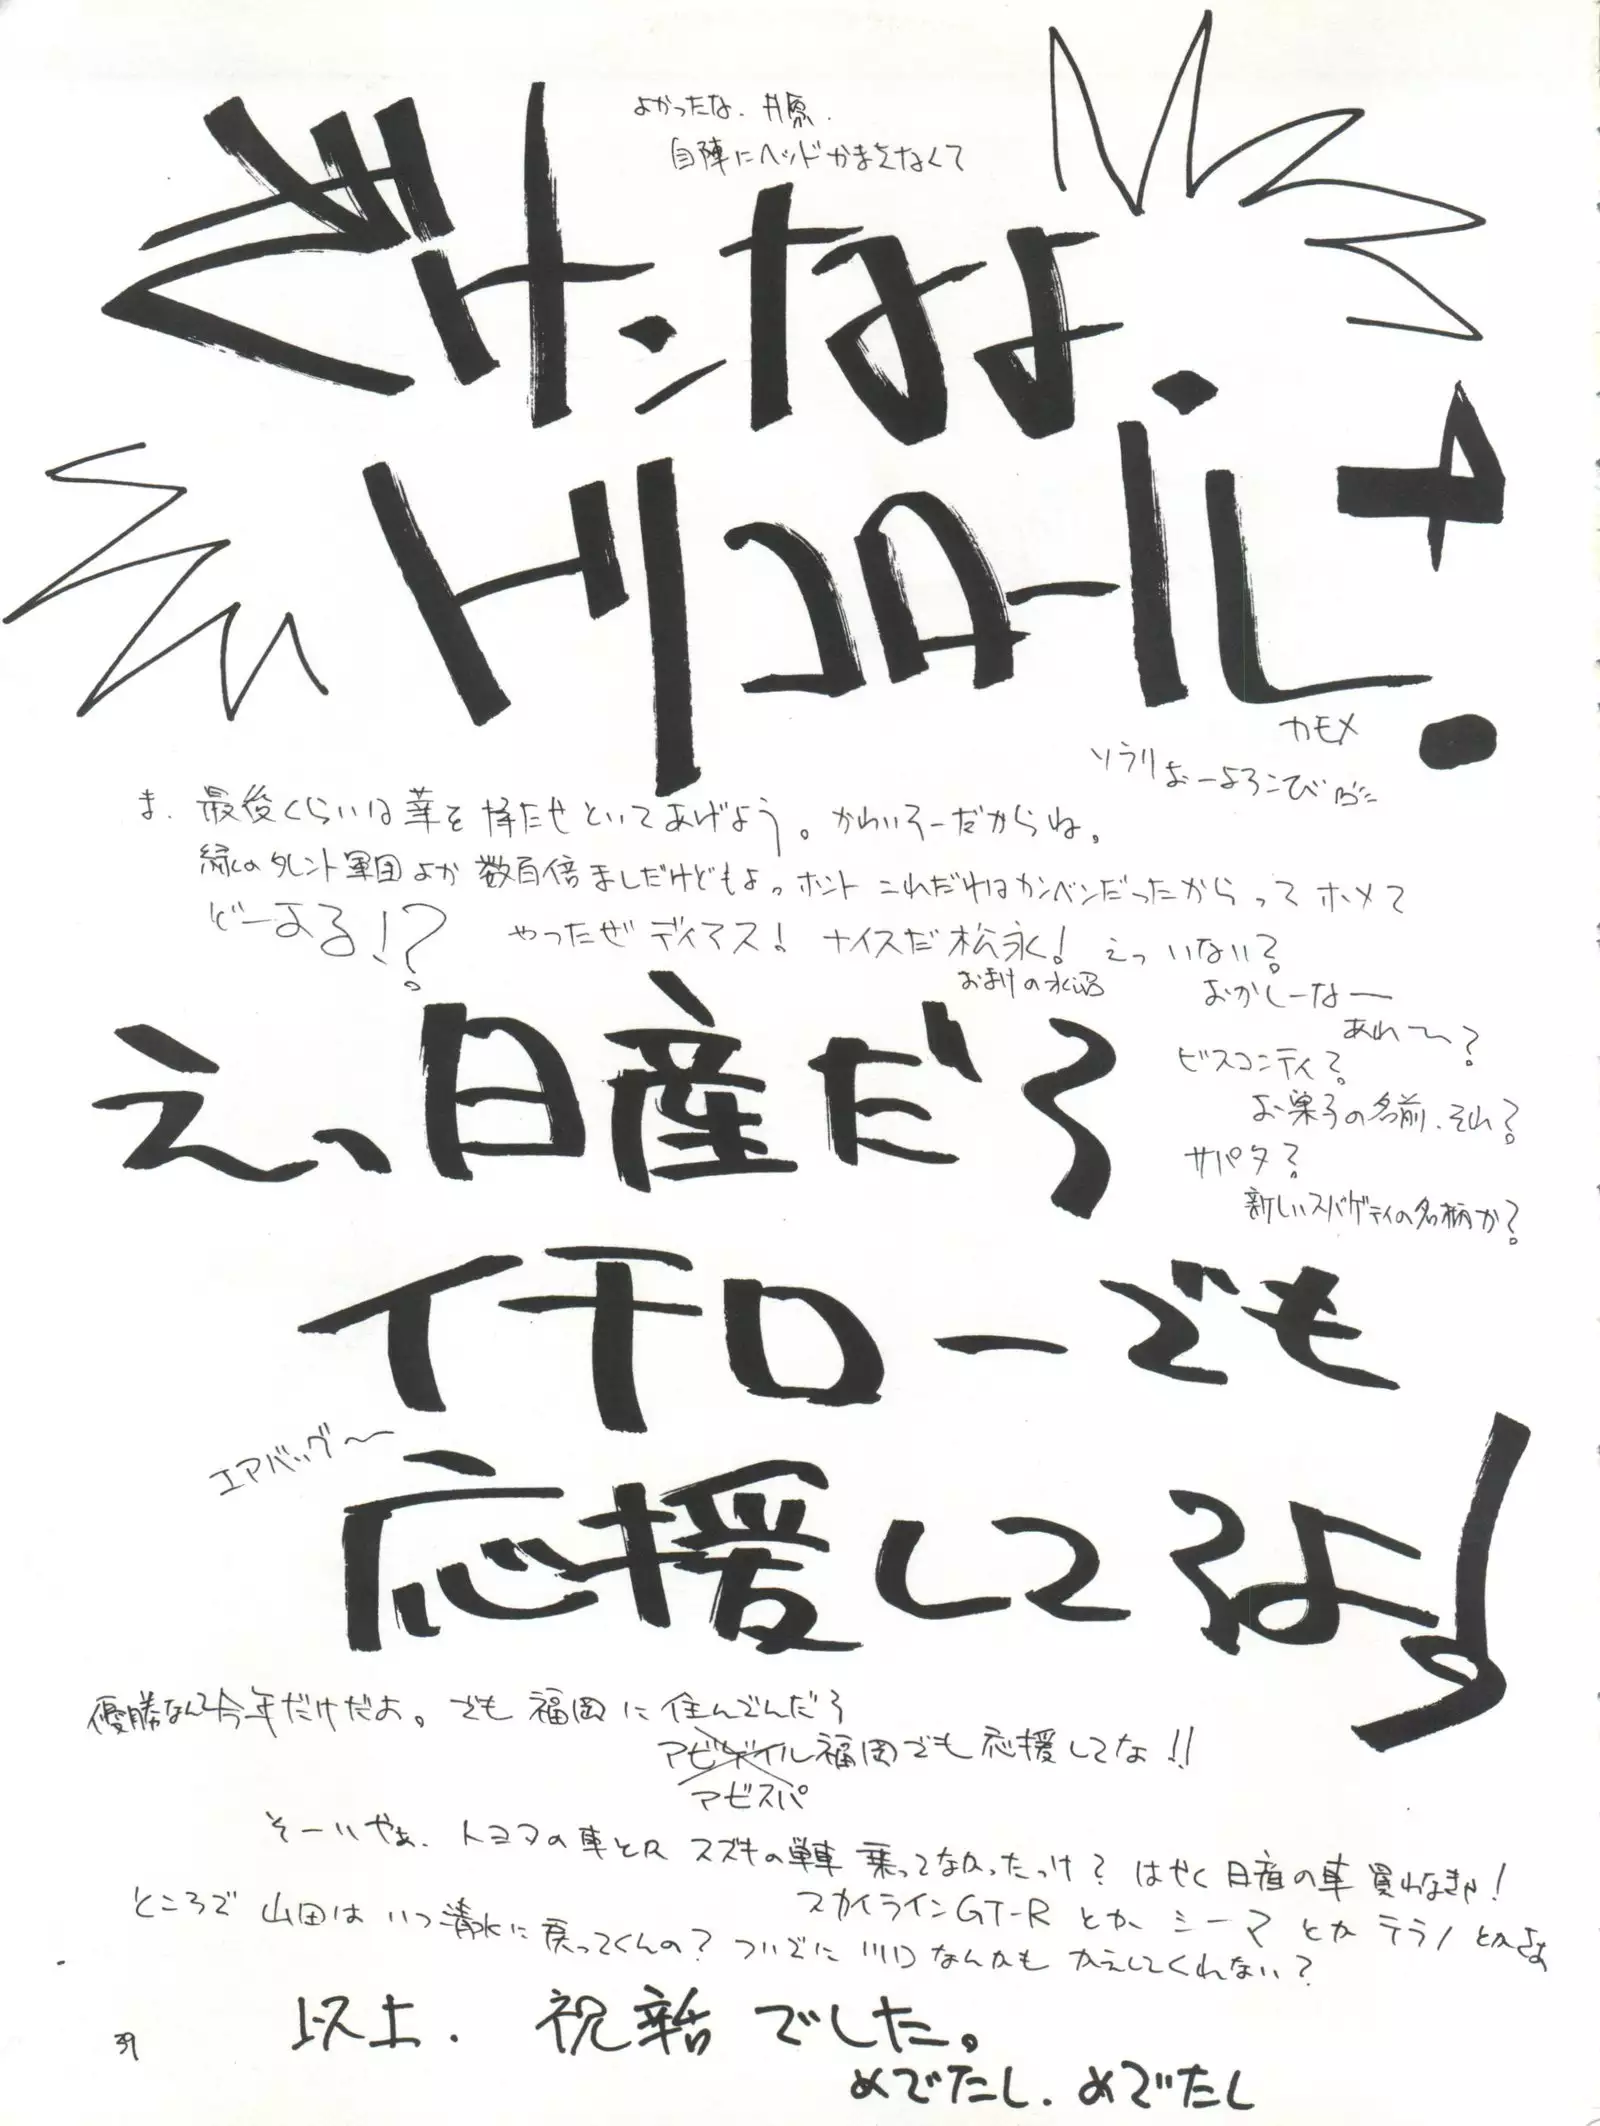 よかったな、井原.
自陣にヘッドかまえなくて
ざけンなよ、
トリコロール!
カモメ
ソラリ
おーよろこび
ま、最後くらいは華を持たせといてあげよう。かわいそーだからね。
緑のタレント軍団よか数百倍ましだけどもよっ ホント これだけはカンベンだったからってホメて
どーする!?
やったぜディアス! ナイスだ松永! えっ いない?
おまけの水沼
おかしーなー
あれ〜?
ビスコンティ?
お菓子の名前、それ?
サパタ?
新しいスパゲティの名柄か?
えっ、日産だろ
イチローでも
応援してろよ!
エアバッグ〜
優勝なんて今年だけだよ。でも福岡に住んでんだろ
福岡でも応援してな!!
アビスパ
そーいやぁ、トヨタの車とか スズキの単車 乗ってなかったっけ? はやく日産の車買わなきゃ!
スカイラインGT-Rとか シーマとか テラノとかよぉ
ところで 山田は いつ清水に戻ってくんの? ついでに川口なんかも かえしてくれない?
以上. 祝辞でした。
めでたし、めでたし
39